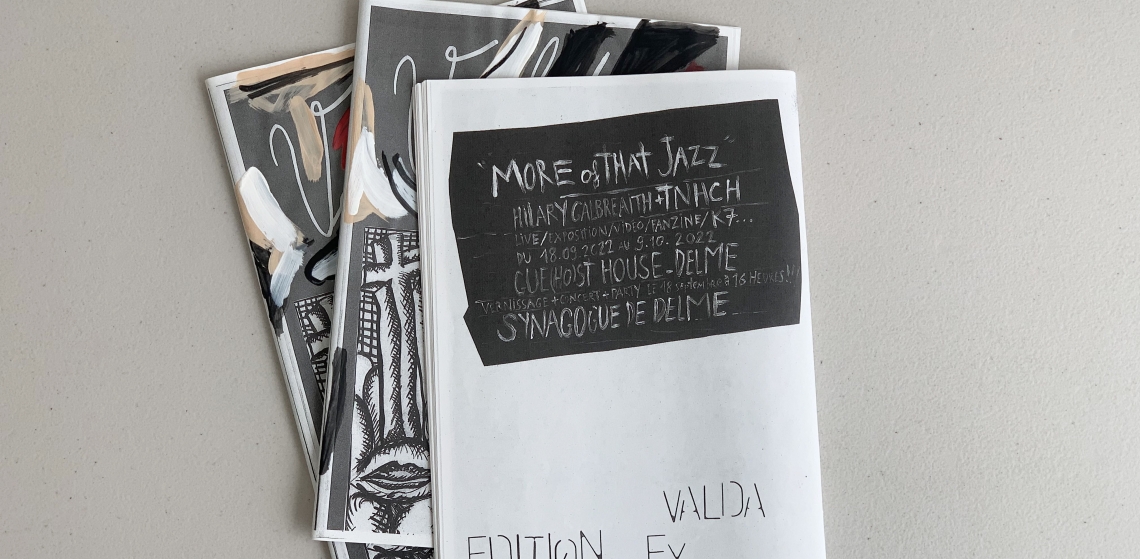 "MORE of THAT JAZZ"
HILLARY GALBREAITH + TNHCH
LIVE/EXPOSITION/VIDEO/FANZINE/K7...
DU 18.09.2022 AU 9.10.2022
GUE(HO)ST HOUSE - DELME
VERNISSAGE + CONCERT + PARTY LE 18 septembre à 16 HEURES!!!
SYNAGOGUE DE DELME
VALIDA
EDITION EX